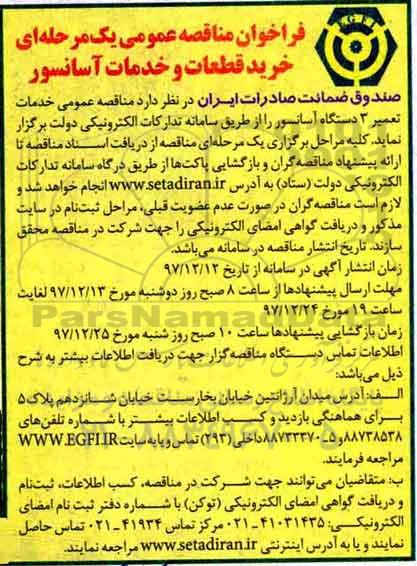 EGFI
فراخوان مناقصه عمومی یک مرحله‌ای
خرید قطعات و خدمات آسانسور
صندوق ضمانت صادرات ایران در نظر دارد مناقصه عمومی خدمات
تعمیر ۳ دستگاه آسانسور را از طریق سامانه تدارکات الکترونیکی دولت برگزار
نماید. کلیه مراحل برگزاری یک مرحله‌ای مناقصه از دریافت اسناد مناقصه تا
ارائه پیشنهاد مناقصه‌گران و بازگشایی پاکت‌ها از طریق درگاه سامانه تدارکات
الکترونیکی دولت (ستاد) به آدرس www.setadiran.ir انجام خواهد شد و
لازم است مناقصه‌گران در صورت عدم عضویت قبلی، مراحل ثبت‌نام در سایت
مذکور و دریافت گواهی امضای الکترونیکی را جهت شرکت در مناقصه محقق
سازند. تاریخ انتشار مناقصه در سامانه می‌باشد.
زمان انتشار آگهی در سامانه از تاریخ ۹۷/۱۲/۱۲
مهلت ارسال پیشنهادها از ساعت ۸ صبح روز دوشنبه مورخ ۹۷/۱۲/۱۳ لغایت
ساعت ۱۹ مورخ ۹۷/۱۲/۲۴
زمان بازگشایی پیشنهادها ساعت ۱۰ صبح روز شنبه مورخ ۹۷/۱۲/۲۵
اطلاعات تماس دستگاه مناقصه‌گزار جهت دریافت اطلاعات بیشتر به شرح
ذیل می‌باشد:
الف: آدرس میدان آرژانتین خیابان بخارست خیابان شانزدهم پلاک ۵
برای هماهنگی بازدید و کسب اطلاعات بیشتر با شماره تلفن‌های
۸۸۷۳۸۵۳۸ و ۵-۸۸۷۳۳۳۷۰ داخلی (۲۹۳) تماس و یا به سایت WWW.EGFI.IR
مراجعه فرمایند.
ب: متقاضیان می‌توانند جهت شرکت در مناقصه، کسب اطلاعات، ثبت‌نام
و دریافت گواهی امضای الکترونیکی (توکن) با شماره دفتر ثبت نام امضای
الکترونیکی: ۴۱۰۳۱۴۳۵-۰۲۱ مرکز تماس ۴۱۹۳۴-۰۲۱ تماس حاصل
نمایند و یا به آدرس اینترنتی www.setadiran.ir مراجعه نمایند.
ParsNamadData